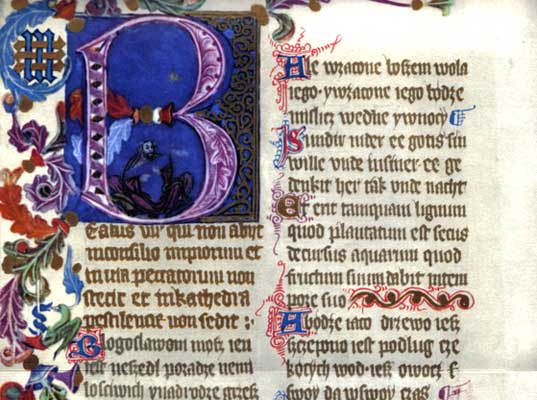 B
eatus vir qui non abyt
in consilio impiorum et
in uia peccatorum non
stetit et in kathedra
pestilencie non sedit :
Bogoslawoni møsz ien
iest neszedl po radze nemi
losciwich y na drodze grzesz
Ale w zacone boszem wola
iego · y w zacone iego bødze
mislicz we dne y w nocy
Sundir in der ee gotis sin
wille vnde in siner ee ge
denkit her tak vnde nacht
Et erit tamquam lignum
quod plantatum est secus
decursus aquarum quod
fructum suum dabit in tem
pore suo
A bødze iaco drzewo iesz
szczepono iest podlug cze
køcych wod · iesz owocz s
swoy da w swoy czas